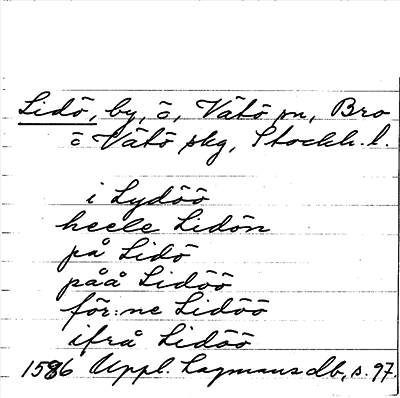 Lidö, by, ö, Vätö sn, Bro
o Vätö skg, Stockh. l.
i Lydöö
heele Lidön
på Lidö
påå Lidöö
för:ne Lidöö
ifrå Lidöö
1586 Uppl. Lagmansdb, s. 97.